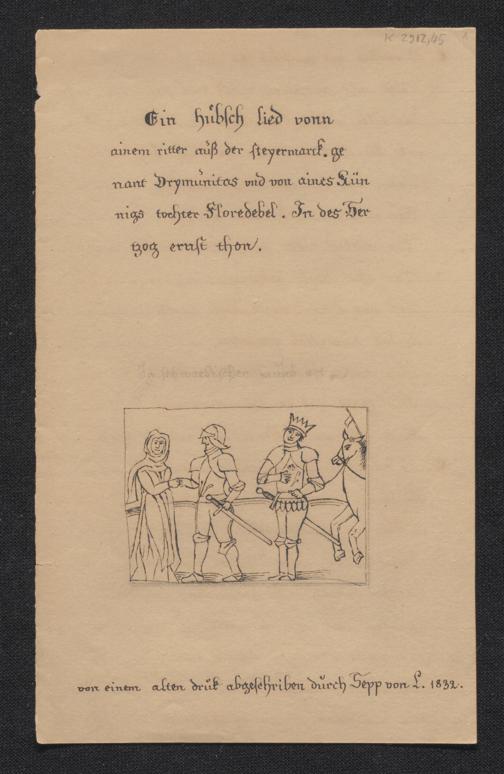 K 2912,45 1
Ein hübsch lied vonn
ainem ritter auß der steyermarck. ge
nant Drymunitas vnd von aines Kün
nigs tochter Floredebel. In des Her
tzog ernst thon.
von einem alten druk abgeschriben durch Sepp von L. 1832.